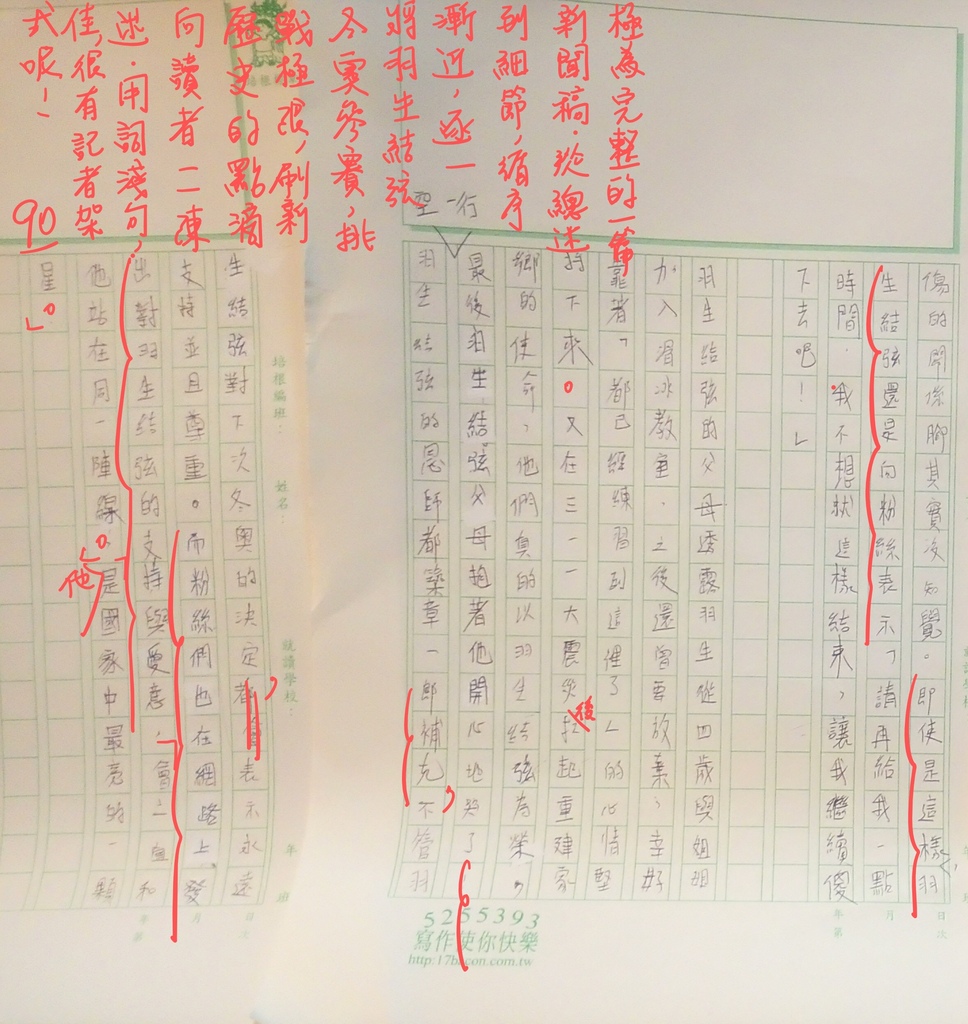 傷的關係腳其實沒知覺。即使是這樣,羽
生結弦還是向粉絲表示「請再給我一點
時間,我不想就這樣結束,讓我繼續傻
下去吧!」
羽生結弦的父母透露羽生從四歲與姐姐
加入滑冰教室,之後還曾要放棄,幸好
靠著「都已經練習到這裡了」的心情堅
持下來。又在三一一大震災後扛起重建家
鄉的使命,他們真的以羽生結弦為榮,
最後羽生結弦父母抱著他開心地哭了。
空一行
羽生結弦的恩師都築章一郎補充,不管羽
生結弦對下次冬奧的決定都會表示永遠
支持並且尊重。而粉絲們也在網路上發
出對羽生結弦的支持與愛意,會一直和
他站在同一陣線。他是國家中最亮的一顆
星。」
極為完整的一篇
新聞稿,從總述
到細節,循序
漸近,逐一
將羽生結弦
冬奧參賽,挑
戰極限,刷新
歷史的點滴
向讀者一一陳
述。用詞淺句,
佳,很有記者架
式呢!
90
培根編班:
姓名:
就讀學校:
年 班
年 月 日
第 次
年 月 日
第 次
5255393
寫作使你快樂
http:17bacon.com.tw